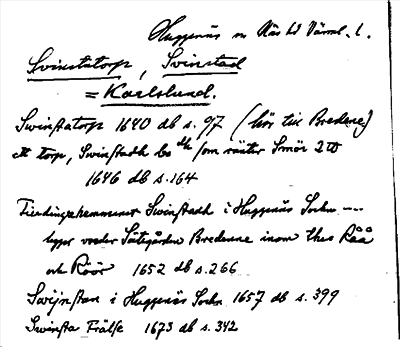 Huggenäs sn Näs hd Värml. l.
Svinstatorp, Svinstad
= Karlslund.
Swinstatorp 1640 db s. 97 (hör till Bredene)
ett torp, Swinstadh som räntar Smör 2 ℔
1646 db s. 164
Swinstadh i Huggenäs Sockn ---
ligger under Sätegården Bredenne inom thes Råå
och Röör 1652 db s. 266
Swijnstan i Huggenäs Sockn 1657 db s. 399
Swinsta Frälse 1673 db s. 342